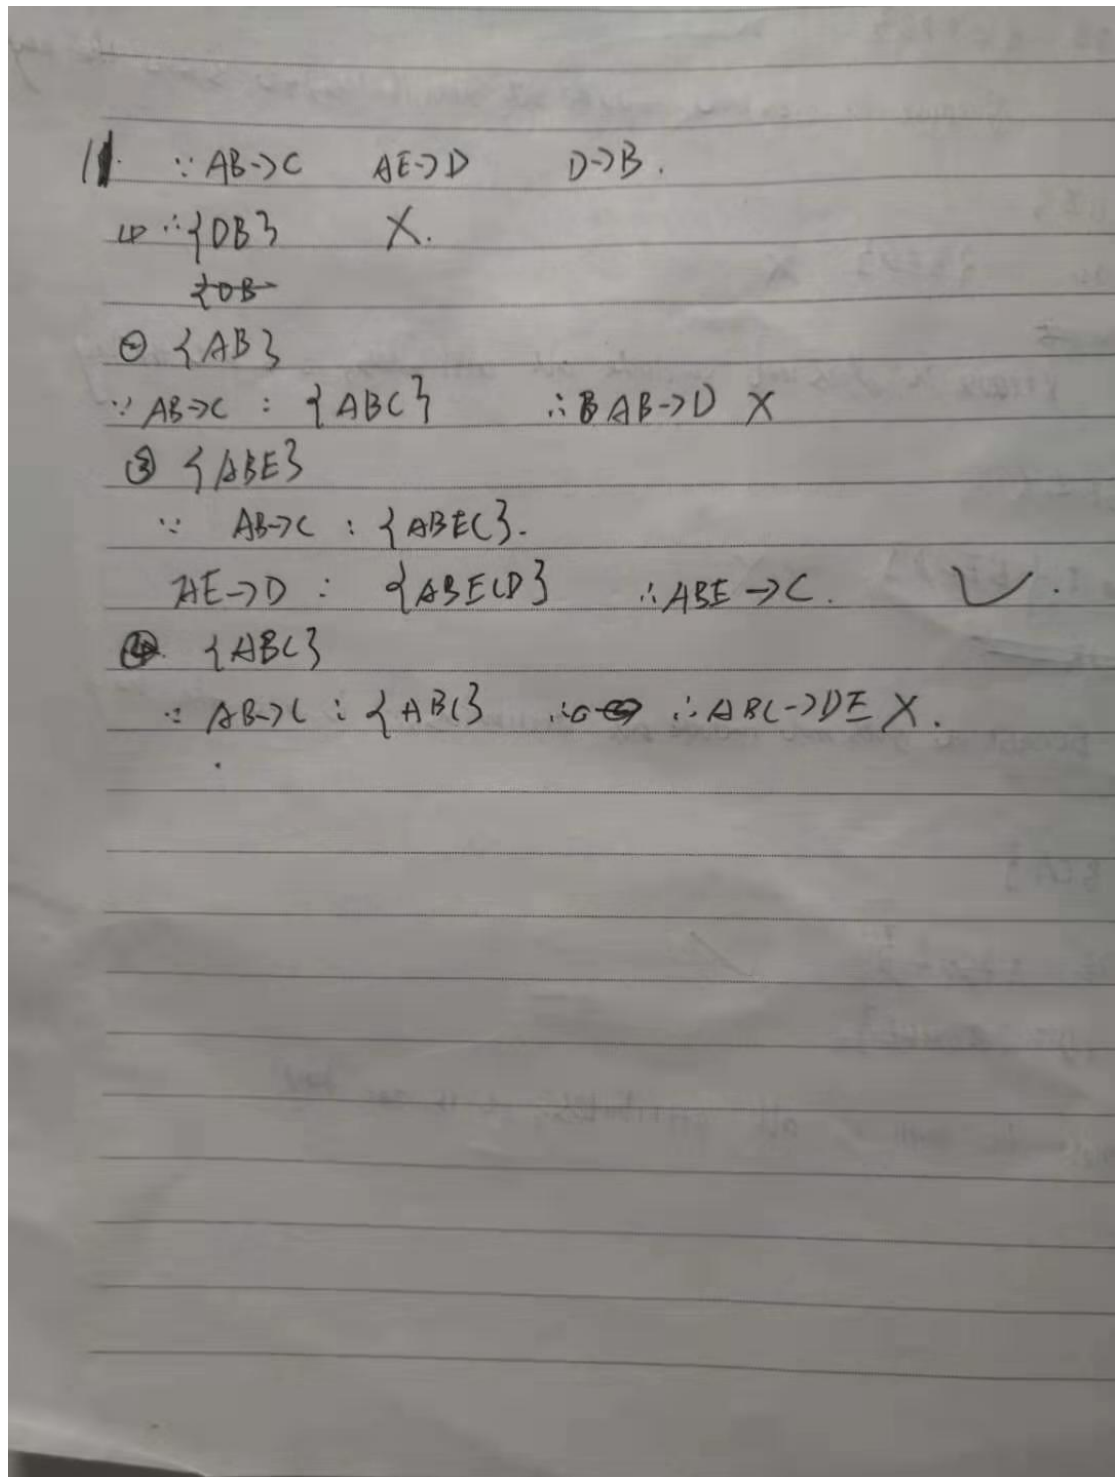 11. ∵ AB->C AE->D D->B.
① ∴ {DB} X.
{DB
② {AB}
∵ AB->C : {ABC} ∴ B AB->D X
③ {ABE}
∵ AB->C : {ABEC}.
AE->D : {ABECD} ∴ ABE->C. ✓.
④ {ABC}
∵ AB->C : {ABC} ∴ ∴ ABC->DE X.